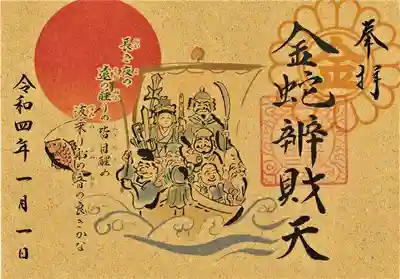 奉拝
金蛇辨財天
長き夜の
遠の睡りの 皆目醒め
波乗り船の音の良きかな
令和四年 一月一日